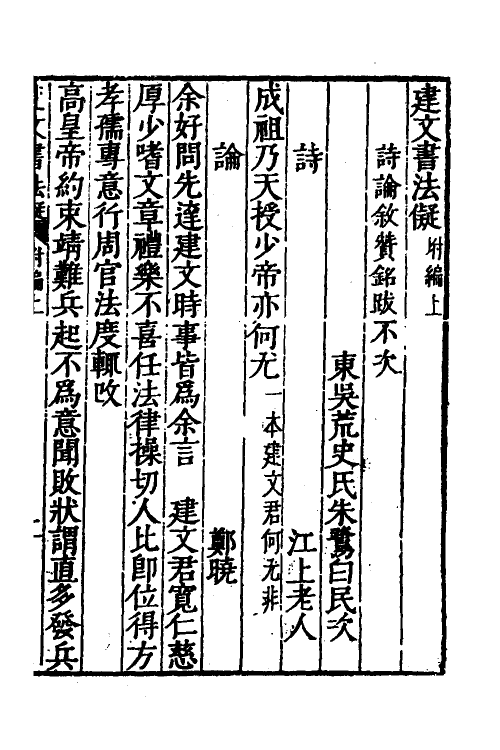 建文書法儗附編上
詩論敘贊銘跋不次
東吳荒史氏朱鷺白民次
詩
江上老人
成祖乃天授少帝亦何尤一本建文君何尤非
論
鄭曉
余好問先達建文時事皆爲余言 建文君寬仁慈
厚少嗜文章禮樂不喜任法律操切人比卽位得方
孝孺專意行周官法度輒改
高皇帝約束靖難兵起不爲意聞敗狀謂直多發兵
建文書法儗 附編上